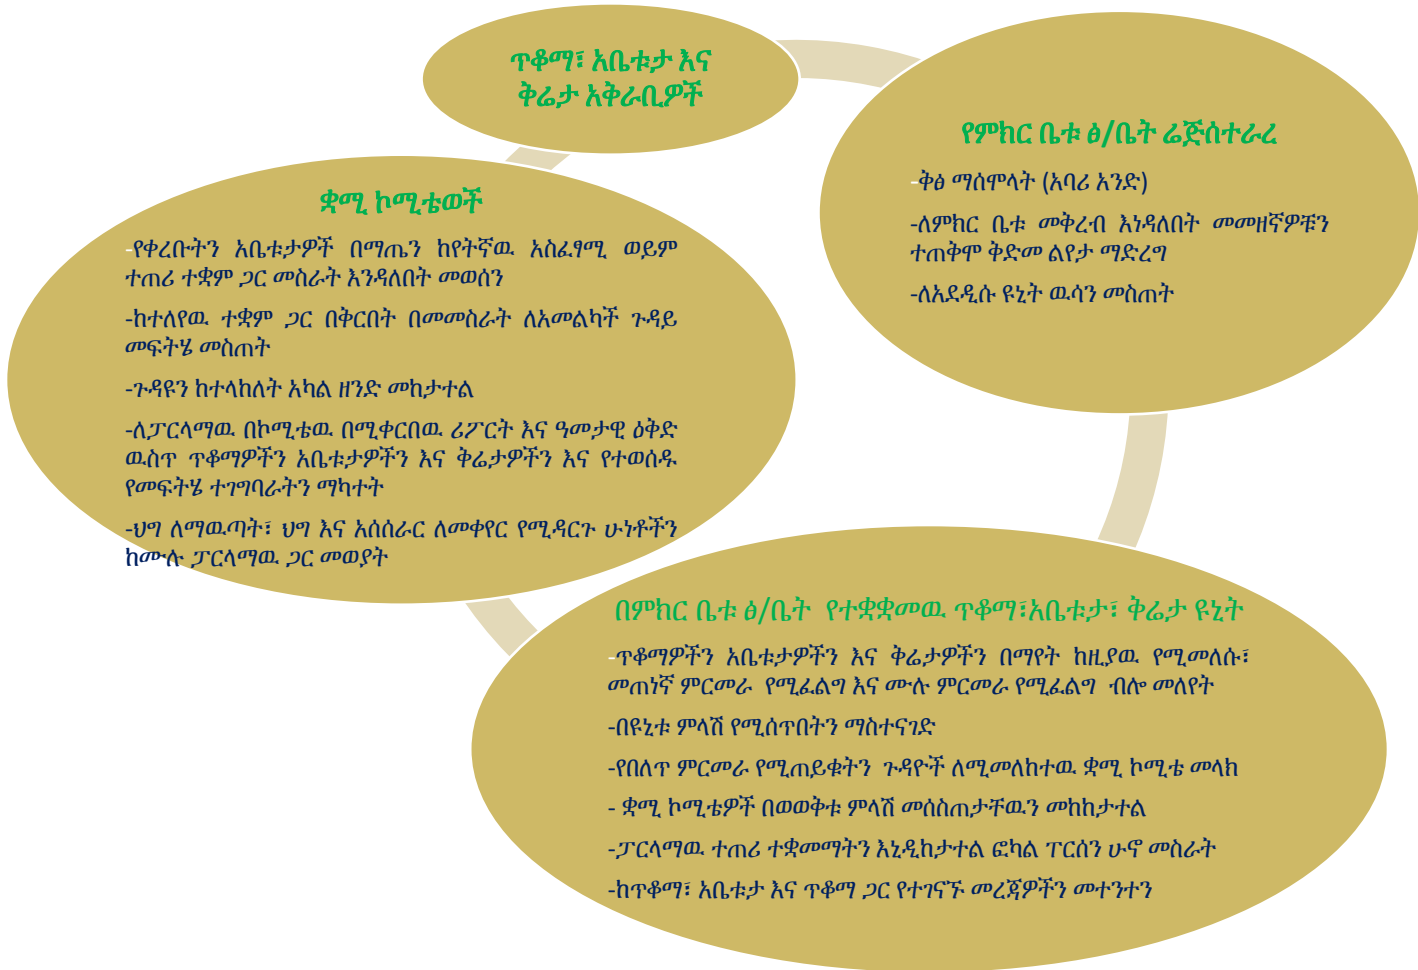 ጥቆማ፣ አቤቱታ እና
ቅሬታ አቅራቢዎች
የምክር ቤቱ ፅ/ቤት ሬጅሰተራረ
-ቅፅ ማሰሞላት (አባሪ አንድ)
-ለምክር ቤቱ መቅረብ እነዳለበት መመዘኛዎቹን
ተጠቅሞ ቅድመ ልየታ ማድረግ
-ለአደዲሱ ዩኒት ዉሳን መስጠት
ቋሚ ኮሚቴወች
-የቀረቡትን አቤቱታዎች በማጤን ከየትኛዉ አስፈፃሚ ወይም
ተጠሪ ተቋም ጋር መስራት እንዳለበት መወሰን
-ከተለየዉ ተቋም ጋር በቅርበት በመመስራት ለአመልካች ጉዳይ
መፍትሄ መስጠት
-ጉዳዩን ከተላከለት አካል ዘንድ መከታተል
-ለፓርላማዉ በኮሚቴዉ በሚቀርበዉ ሪፖርት እና ዓመታዊ ዕቅድ
ዉስጥ ጥቆማዎችን አቤቱታዎችን እና ቅሬታዎችን እና የተወሰዱ
የመፍትሄ ተገግባራትን ማካተት
-ህግ ለማዉጣት፣ ህግ እና አሰሰራር ለመቀየር የሚዳርጉ ሁነቶችን
ከሙሉ ፓርላማዉ ጋር መወያት
በምክር ቤቱ ፅ/ቤት የተቋቋመዉ ጥቆማ፣አቤቱታ፣ ቅሬታ ዩኒት
-ጥቆማዎችን አቤቱታዎችን እና ቅሬታዎችን በማየት ከዚያዉ የሚመለሱ፣
መጠነኛ ምርመራ የሚፈልግ እና ሙሉ ምርመራ የሚፈልግ ብሎ መለየት
-በዩኒቱ ምላሽ የሚሰጥበትን ማስተናገድ
-የበለጥ ምርመራ የሚጠይቁትን ጉዳዮች ለሚመለከተዉ ቋሚ ኮሚቴ መላክ
- ቋሚ ኮሚቴዎች በወወቅቱ ምላሽ መሰስጠታቸዉን መከከታተል
-ፓርላማዉ ተጠሪ ተቋመማትን እኒዲከታተል ፎካል ፐርሰን ሁኖ መስራት
-ከጥቆማ፣ አቤቱታ እና ጥቆማ ጋር የተገናኙ መረጃዎችን መተንተን